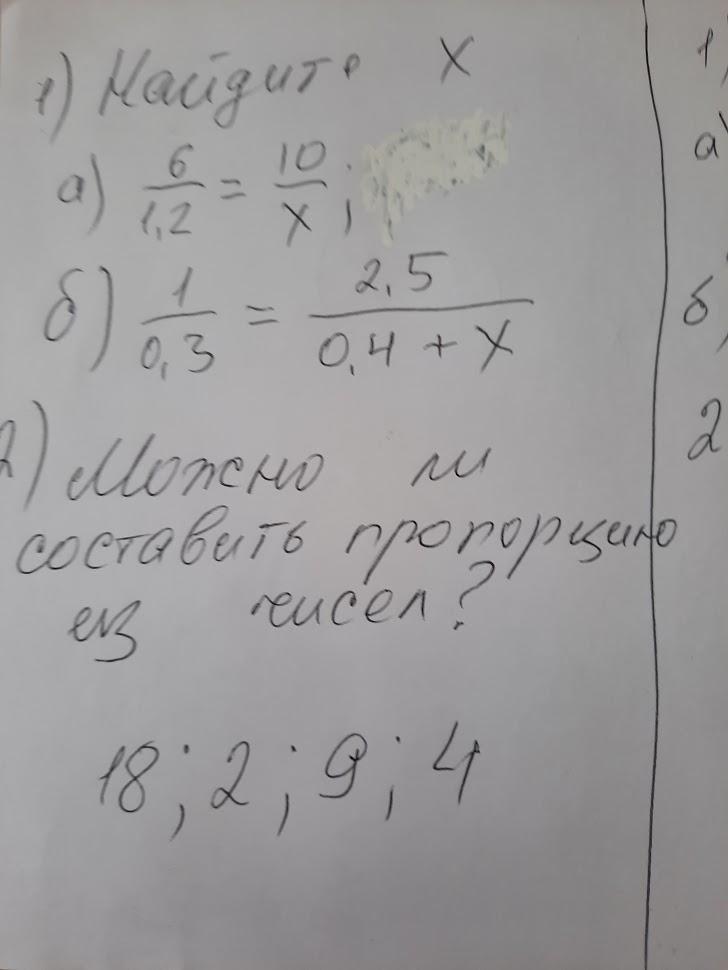 1) Найдите x
а) 6/1,2 = 10/x;
б) 1/0,3 = 2,5/0,4 + x
2) Можно ли
составить пропорцию
из чисел?
18; 2; 9; 4
1)
а)
б)
2